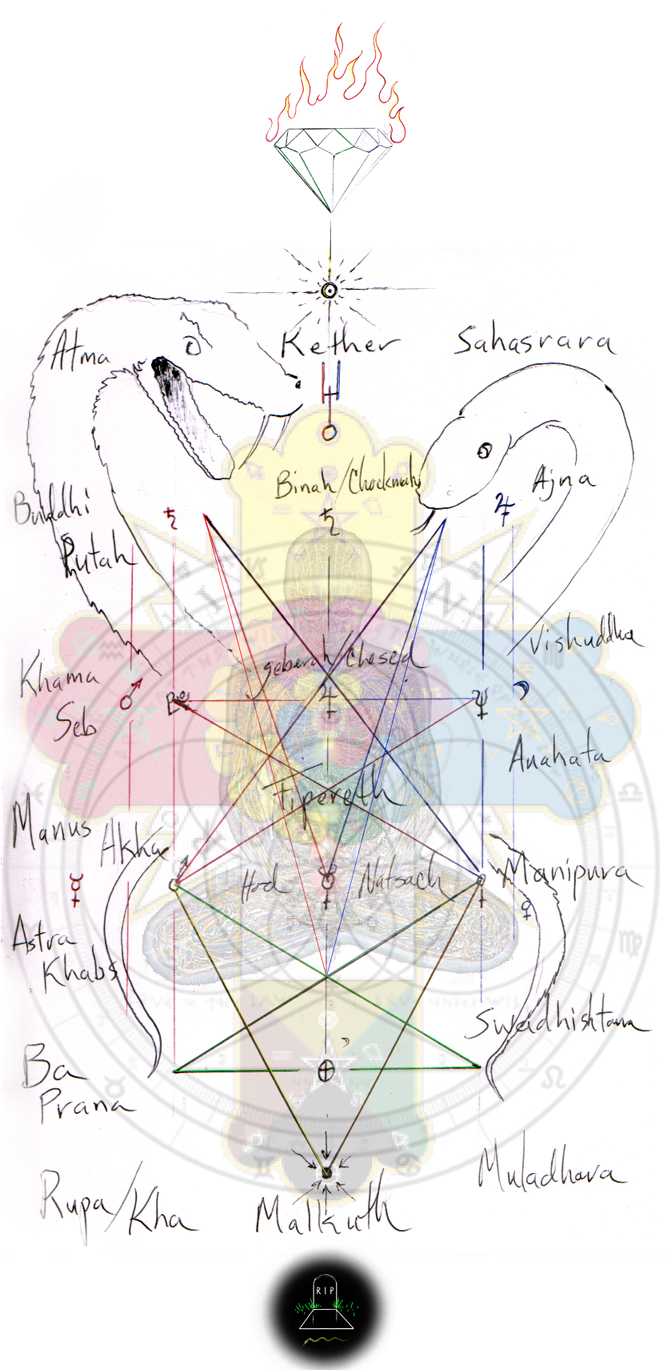 Kether
Sahasrara
Atma
Binah/Chockmah
Ajna
Buddhi
Putah
Vishuddha
geburah/Chesed
Khama
Seb
Anahata
Tipereth
Manus
Akha
Manipura
Hod
Natsach
Astra
Khabs
Swadhishtana
Ba
Prana
Muladhara
Rupa/Kha
Malkuth
RIP